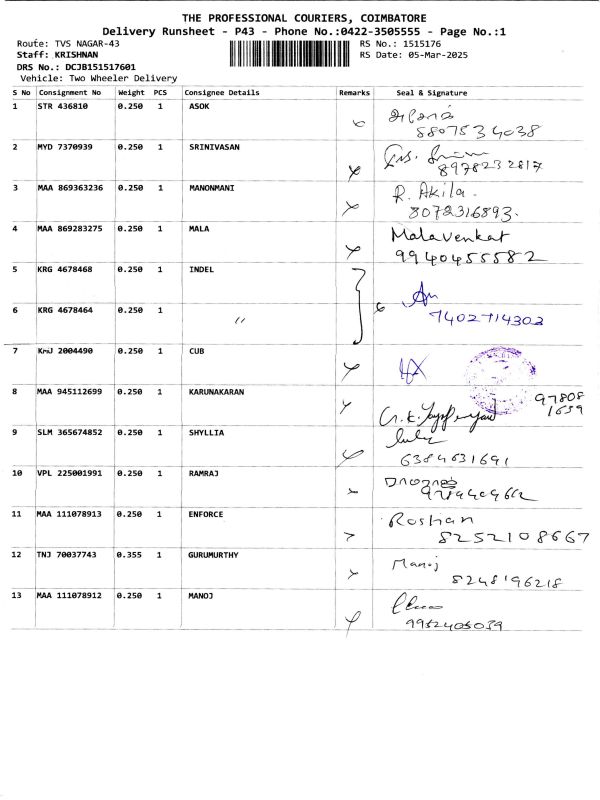 THE PROFESSIONAL COURIERS, COIMBATORE
Delivery Runsheet - P43 - Phone No.:0422-3505555 - Page No.:1
Route: TVS NAGAR-43 RS No.: 1515176
Staff: KRISHNAN RS Date: 05-Mar-2025
DRS No.: DCJB151517601
Vehicle: Two Wheeler Delivery
S No Consignment No Weight PCS Consignee Details Remarks Seal & Signature
1 STR 436810 0.250 1 ASOK
5807534038
2 MYD 7370939 0.250 1 SRINIVASAN
8978232817
3 MAA 869363236 0.250 1 MANONMANI R. Akila.
8072316893.
4 MAA 869283275 0.250 1 MALA Malavenkat
9940455582
5 KRG 4678468 0.250 1 INDEL
6 KRG 4678464 0.250 1 〃 7402714302
7 KmJ 2004490 0.250 1 CUB
8 MAA 945112699 0.250 1 KARUNAKARAN 97808
1659
9 SLM 365674852 0.250 1 SHYLLIA
6384631691
10 VPL 225001991 0.250 1 RAMRAJ
11 MAA 111078913 0.250 1 ENFORCE Roshan
8252108667
12 TNJ 70037743 0.355 1 GURUMURTHY Manoj
8248196218
13 MAA 111078912 0.250 1 MANOJ
9952405039